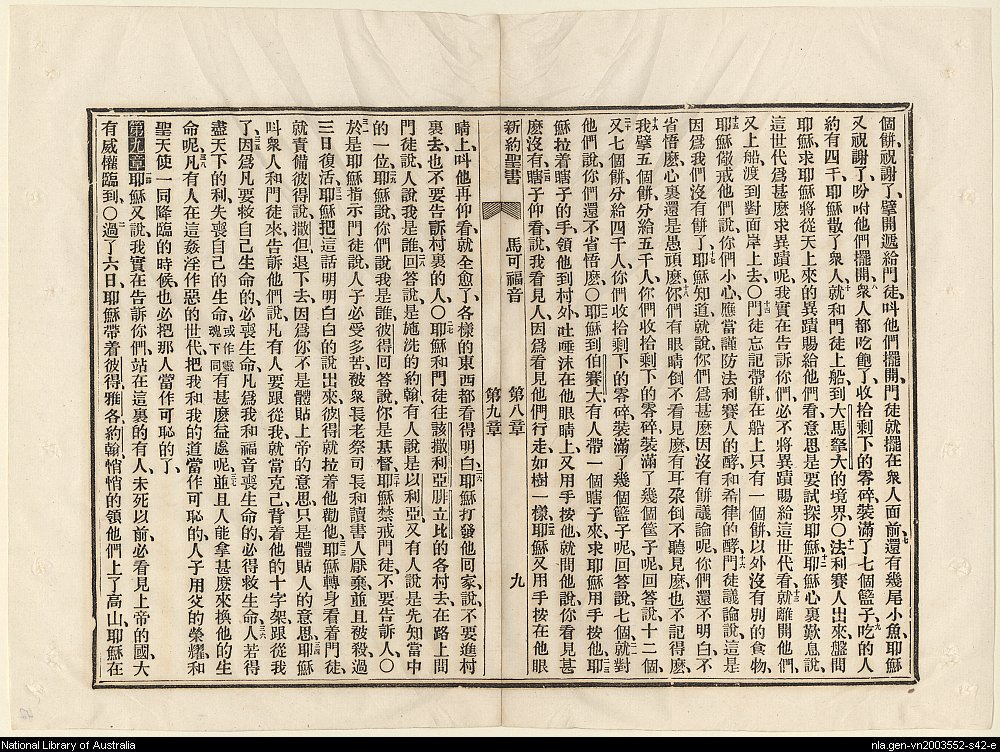 個餅、祝謝了、擘開遞給門徒、呌他們擺開、門徒就擺在衆人面前、七還有幾尾小魚、耶穌
又祝謝了、吩咐他們擺開、八衆人都吃飽了、收拾剩下的零碎、裝滿了七個籃子、九吃的人
約有四千、耶穌散了衆人、十就和門徒上船、到大馬拏大的境界○十一法利賽人出來、盤問
耶穌、求耶穌將從天上來的異蹟賜給他們看、意思是要試探耶穌、十二耶穌心裏歎息說、
這世代爲甚麽求異蹟呢、我實在告訴你們、必不將異蹟賜給這世代看、十三就離開他們、
又上船、渡到對面岸上去○十四門徒忘記帶餅、在船上只有一個餅、以外沒有別的食物、
十五耶穌儆戒他們說、你們小心、應當謹防法利賽人的酵、和希律的酵、十六門徒議論說、這是
因爲我們沒有餅了、十七耶穌知道、就說、你們爲甚麽因沒有餅議論呢、你們還不明白、不
省悟麽、心裏還是愚頑麽、十八你們有眼睛、倒不看見麽、有耳朶、倒不聽見麽、也不記得麽、
十九我擘五個餅、分給五千人、你們收拾剩下的零碎、裝滿了幾個筐子呢、回答說、十二個、
二十又七個餅分給四千人、你們收拾剩下的零碎、裝滿了幾個籃子呢、回答說、七個、二一就對
他們說、你們還不省悟麽○二二耶穌到伯賽大、有人帶一個瞎子來、求耶穌用手按他、二三耶
穌拉着瞎子的手、領他到村外、吐唾沫在他眼睛上、又用手按他、就問他說、你看見甚
麽沒有、二四瞎子仰看說、我看見人、因爲看見他們行走、如樹一樣、二五耶穌又用手按在他眼
新約聖書
馬可福音
第八章
第九章
九
睛上、呌他再仰看、就全愈了、各樣的東西都看得明白、二六耶穌打發他回家、說、不要進村
裏去、也不要告訴村裏的人○二七耶穌和門徒往該撒利亞腓立比的各村去、在路上問
門徒說、人說我是誰、二八回答說、是施洗的約翰、有人說是以利亞、又有人說是先知當中
的一位、二九耶穌說、你們說我是誰、彼得回答說、你是基督、三十耶穌禁戒門徒、不要告訴人○
三一於是耶穌指示門徒說、人子必受多苦、被衆長老祭司長和讀書人厭棄、並且被殺、過
三日復活、三二耶穌把這話明明白白的說出來、彼得就拉着他勸他、三三耶穌轉身看着門徒、
就責備彼得說、撒但、退下去、因爲你不是體貼上帝的意思、只是體貼人的意思、三四耶穌
呌衆人和門徒來、告訴他們說、凡有人要跟從我、就當克己、背着他的十字架跟從我
了、三五因爲凡要救自己生命的、必喪生命、凡爲我和福音喪生命的、必得救生命、三六人若得
盡天下的利、失喪自己的生命、或作靈魂下同有甚麽益處呢、三七並且人能拿甚麽來換他的生
命呢、三八凡有人在這姦淫作惡的世代、把我和我的道當作可恥的、人子用父的榮耀、和
聖天使一同降臨的時候、也必把那人當作可恥的了、
第九章一耶穌又說、我實在告訴你們、站在這裏的有人未死以前、必看見上帝的國大
有威權臨到○二過了六日、耶穌帶着彼得雅各約翰、悄悄的領他們上了高山、耶穌在
National Library of Australia
nla.gen-vn2003552-s42-e